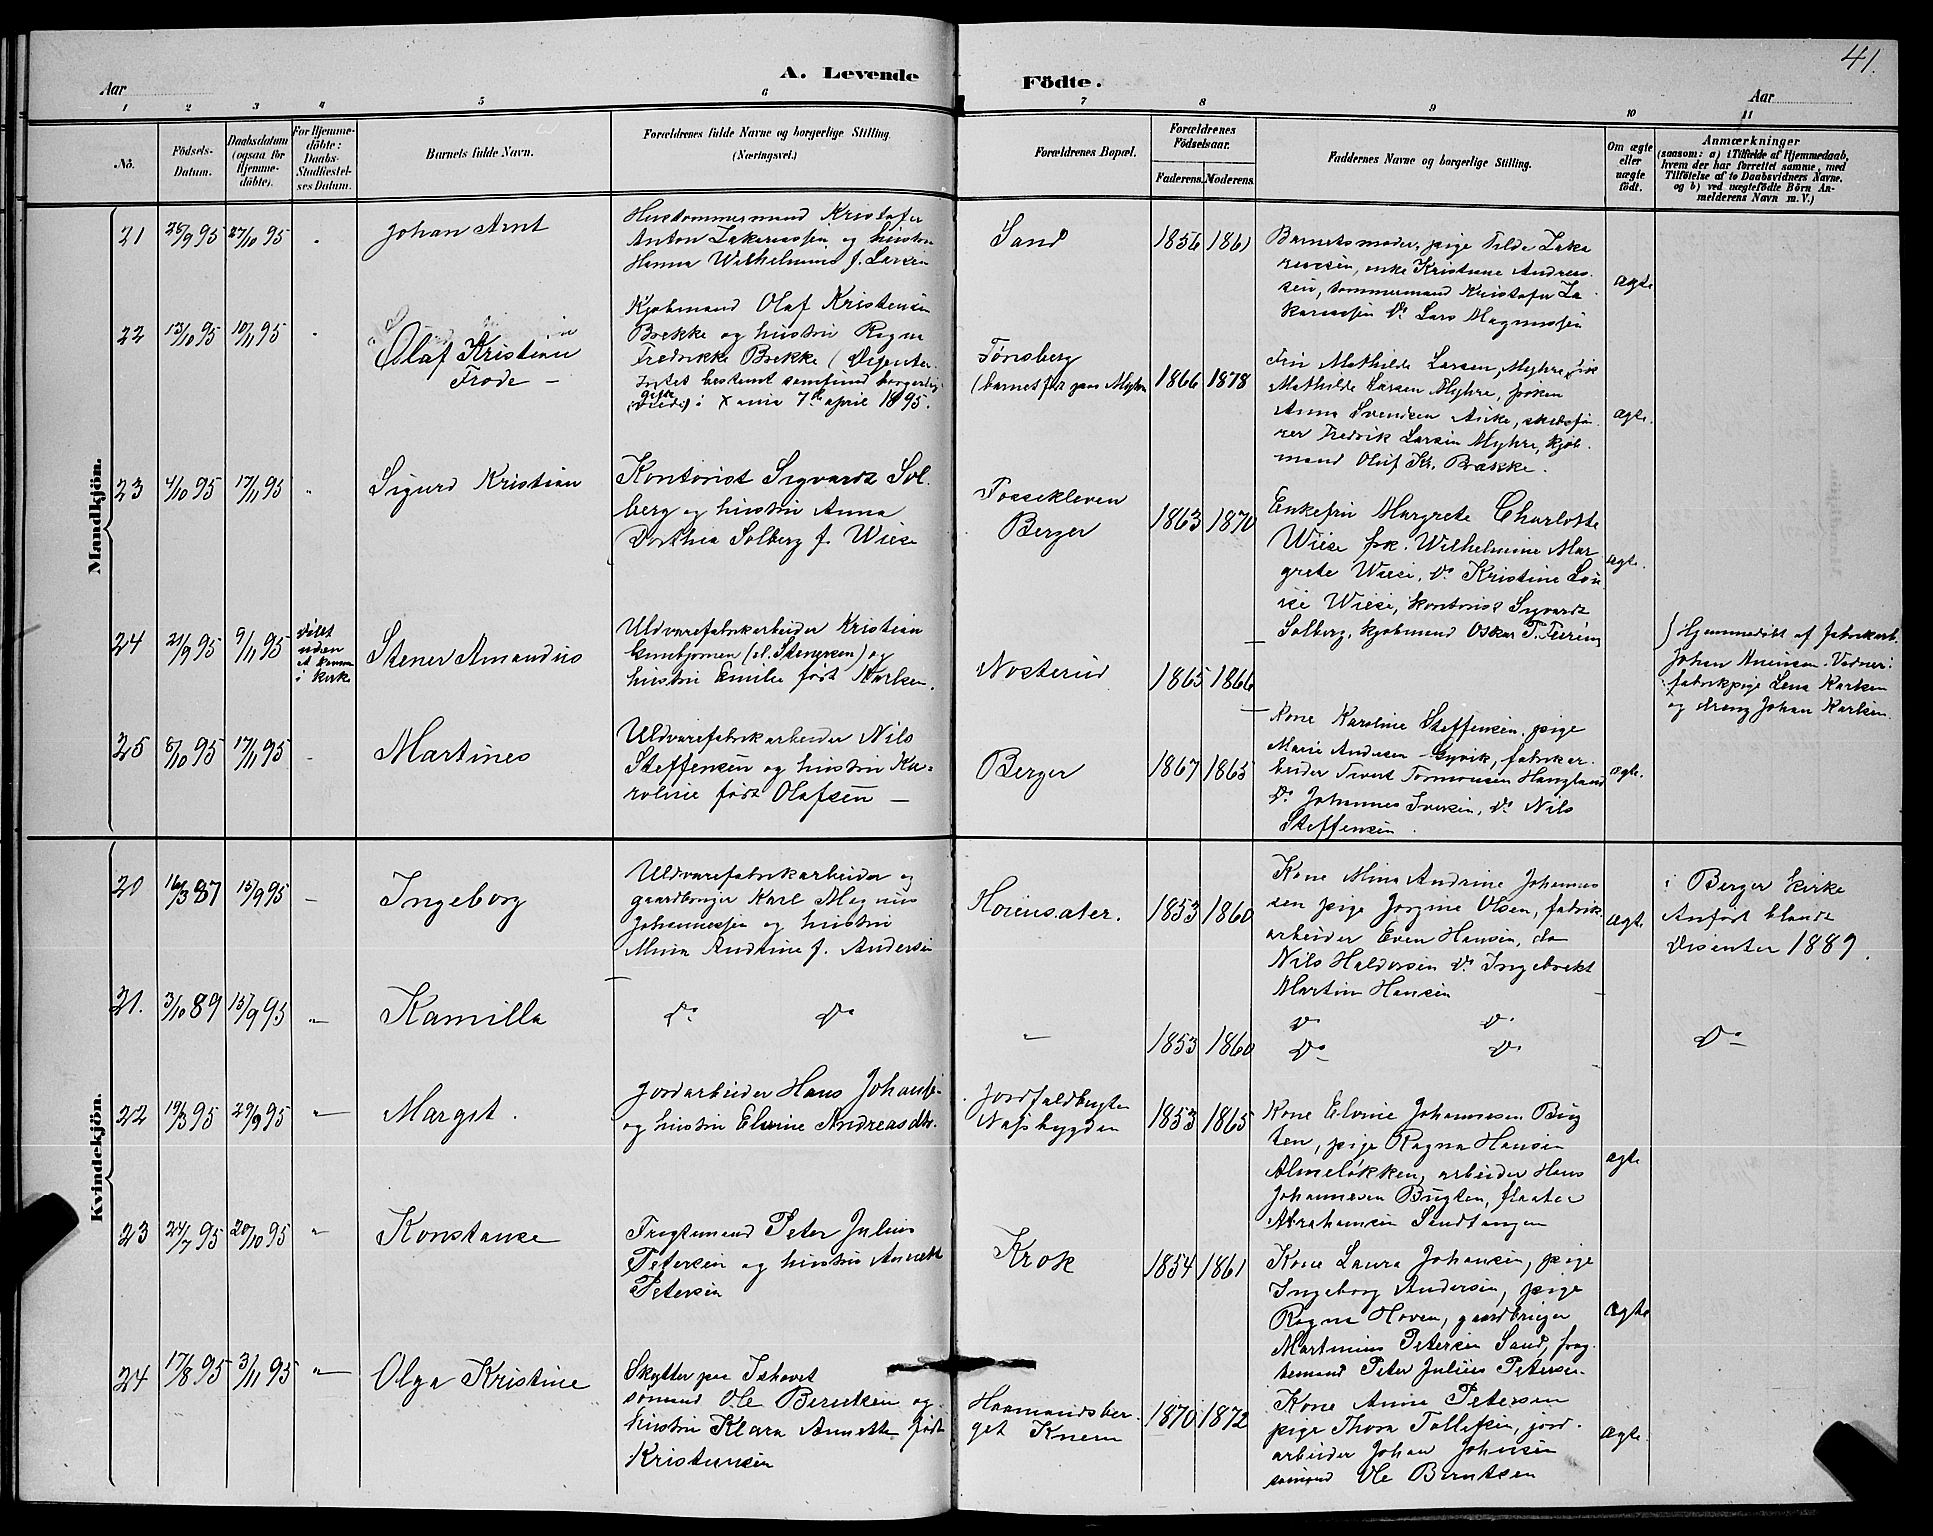 41.
A. Levende Födte.
Aar
Aar
1 2 3 4 5 6 7 8 9 10 11
No.
Födsels-
Datum.
Daabsdatum
(ogsaa for
Hjemme-
döbte).
For Hjemme-
döbte:
Daabs-
Stadfæstel-
ses Datum.
Barnets fulde Navn.
Forældrenes fulde Navne og borgerlige Stilling.
(Næringsvei.)
Forældrenes Bopæl.
Forældrenes
Födselsaar.
Faderens. Moderens.
Faddernes Navne og borgerlige Stilling.
Om ægte
eller
uægte
födt.
Anmærkninger
(saasom: a) i Tilfælde af Hjemmedaab,
hvem der har forrettet samme, med
Tilföielse af to Daabsvidners Navne.
og b) ved uægtefödte Börn An-
melderens Navn m. V.)
Mandkjön.
21
26/9 95
27/10 95
Johan Arnt
Hustømmermand Kristofer
Anton Zakariassen og hustru
Hanna Wilhelmine f. Larsen
Sand
1856
1861
Barnets moder, pige Tilde Zaka
riassen, enke Kristine Andreas
sen, tømmermand Kristofer Za
kariassen Do Lars Magnussen
ægte
22
13/10 95
10/11 95
Olaf Kristian
Frode —
Kjøbmand Olaf Kristensen
Brekke og hustru Ragna
Fredrikke Brekke (Disenter
Intet bestemt samfund borgerlig
gifte
(viede) i Xania 7de april 1895.
Tønsberg
(barnet født paa Myhre
1866
1878
Fru Mathilde Larsen, Myhre, frk
Mathilde Larsen Myhre, frøken
Anna Svendsen Aske, skibsfø
rer Fredrik Larsen Myhre, kjøb
mand Oluf Kr. Brække.
ægte.
23
4/10 95
17/11 95
Sigurd Kristian
Kontorist Sigvardt Sol
berg og hustru Anna
Dorthea Solberg f. Wiese
Fossekleven
Berger
1863
1870
Enkefru Margrete Charlotte
Wiese frk. Wilhelmine Mar
grete Wiese, Do Kristine Lou
ise Wiese, kontorist Sigvardt
Solberg, kjøbmand Oskar T.
ægte.
24
21/9 95
9/11 95
døbt
uden
at komme
i kirke
Stener Amandus
Uldvarefabrikarbeider Kristian
Gunbjørnsen (el. Stenersen) og
hustru Emilie født Karlsen.
Nosterud
1865
1866
Hjemmedøbt af fabrikarb.
Johan Vidner:
fabrikpige Lena Karlsen
og dreng Johan Karlsen.
25
8/10 95
17/11 95
Martines
Uldvarefabrikarbeider Nils
Steffensen og hustru Ka=
roline født Olafsen —
Berger
1867
1865
Kone Karoline Steffensen, pige
Marie Andersen Gyvik, fabrikar
beider Sivert Tormonsen Haugland
Do Johannes Iversen, Do Nils
Steffensen.
ægte.
Kvindekjön.
20
16/3 87
15/9 95
Ingeborg
Uldvarefabrikarbeider og
gaardbruger Karl Magnus
Johannessen og hustru
Mina Andrine f. Andersen
Høiensæter.
1853
1860
Kone Mina Andrine Johannes
sen pige Jorgine Olsen, fabrik
arbeider Even Hansen, do
Nils Haldorsen Do Ingebrekt
Martin Hansen
ægte
i Berger kirke
Anført blandt
Disenter 1889.
21.
3/10 89
15/9 95
Kamilla
Do Do
1853
1860
Do Do
Do Do
Do
22
19/3 95
29/9 95
Margit.
Jordarbeider Hans Johansen
og hustru Elvine Andreasdtr.
Jordfaldbugten
Nessbygden
1853
1865
Kone Elvine Johannesen Bug
ten, pige Ragna Hansen
Almeløkken, arbeider Hans
Johannesen Bugten, fløater
Abrahamsen Sandtangen
ægte
23
24/7 95
20/10 95
Konstanse
Fragtemand Peter Julius
Petersen og hustru Annette
Petersen
Krok
1854
1861
Kone Laura Johansen, pige
Ingeborg Andersen, pige
Ragna Hoven, gaardbruger
Martinius Petersen Sand, frag
temand Peter Julius Petersen
ægte
24
17/8 95
3/11 95
Olga Kristine
Skytter paa Ishavet
sømand Ole Berntsen og
hustru Klara Annette født
Kristensen
Haamandsber
get Knem
1870
1872
Kone Anna Petersen
pige Thora Tollefsen, jord
arbeider Johan Johnsen
sømand Ole Berntsen
ægte.